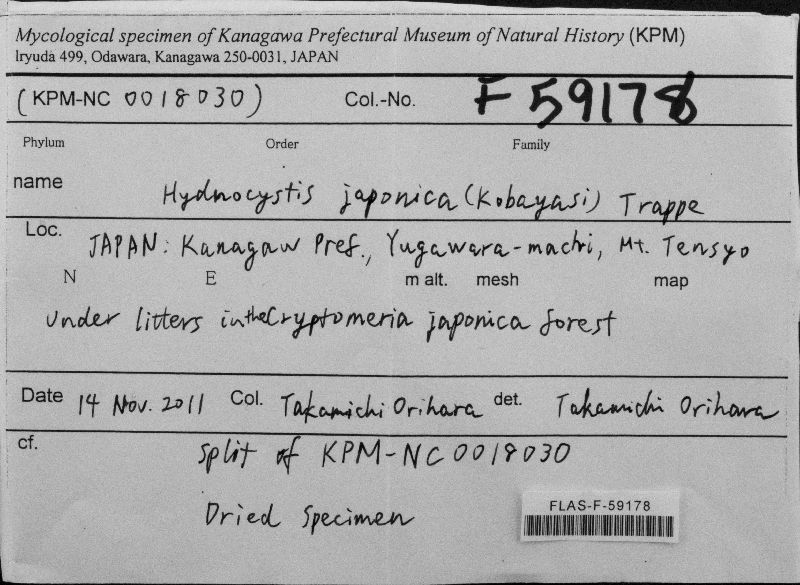 Mycological specimen of Kanagawa Prefectural Museum of Natural History (KPM)
Iryuda 499, Odawara, Kanagawa 250-0031, JAPAN
(KPM-NC 0018030) Col.-No. F 59178
Phylum Order Family
name Hydnocystis japonica (Kobayasi) Trappe
Loc. JAPAN: Kanagaw Pref., Yugawara-machi, Mt. Tensyo
N E m alt. mesh map
under litters in the Cryptomeria japonica forest
Date 14 Nov. 2011 Col. Takamichi Orihara det. Takamichi Orihara
cf. split of KPM-NC 0018030
Dried specimen
FLAS-F-59178